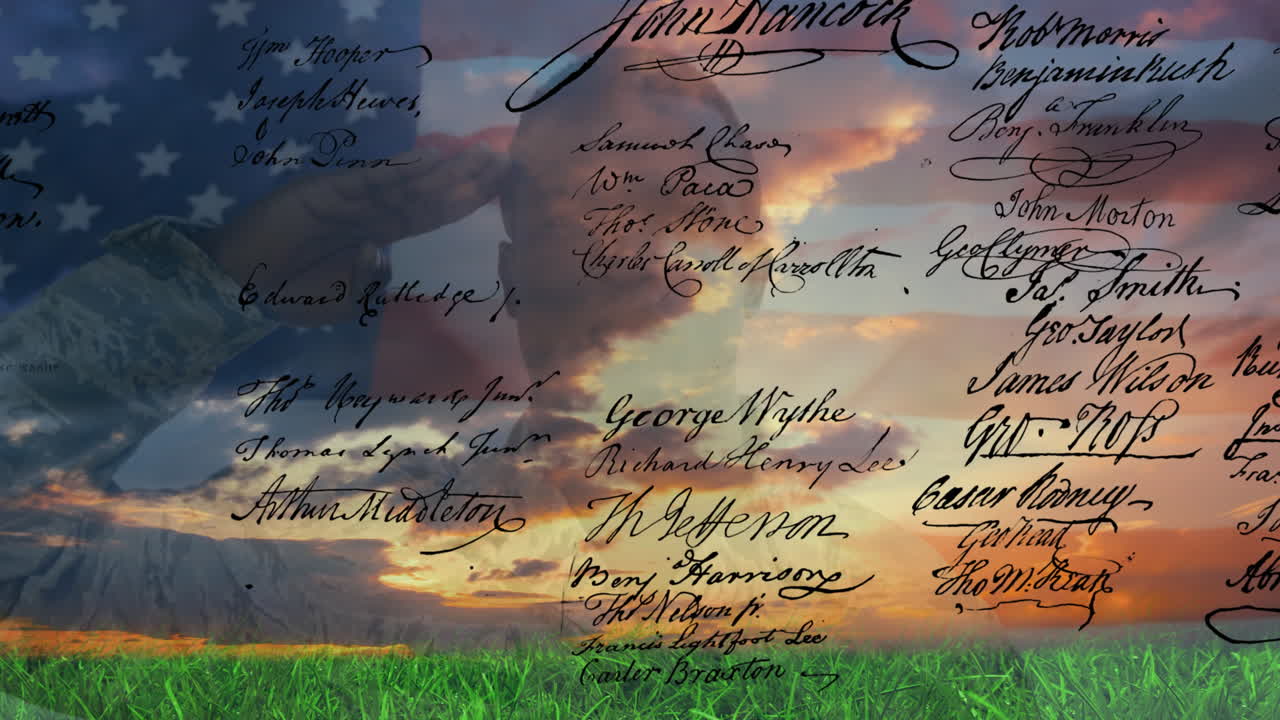 Wm Hooper
Joseph Hewes,
John Penn
Edward Rutledge /.
Thos Heyward Junr.
Thomas Lynch Junr.
Arthur Middleton
John Hancock
Samuel Chase
Wm. Paca
Thos. Stone
Charles Carroll of Carrollton
George Wythe
Richard Henry Lee
Th Jefferson
Benj Harrison
Thos Nelson jr.
Francis Lightfoot Lee
Carter Braxton
Robt Morris
Benjamin Rush
Benj. Franklin
John Morton
Geo Clymer
Jas. Smith
Geo. Taylor
James Wilson
Geo. Ross
Caesar Rodney
Geo Read
Tho M:Kean